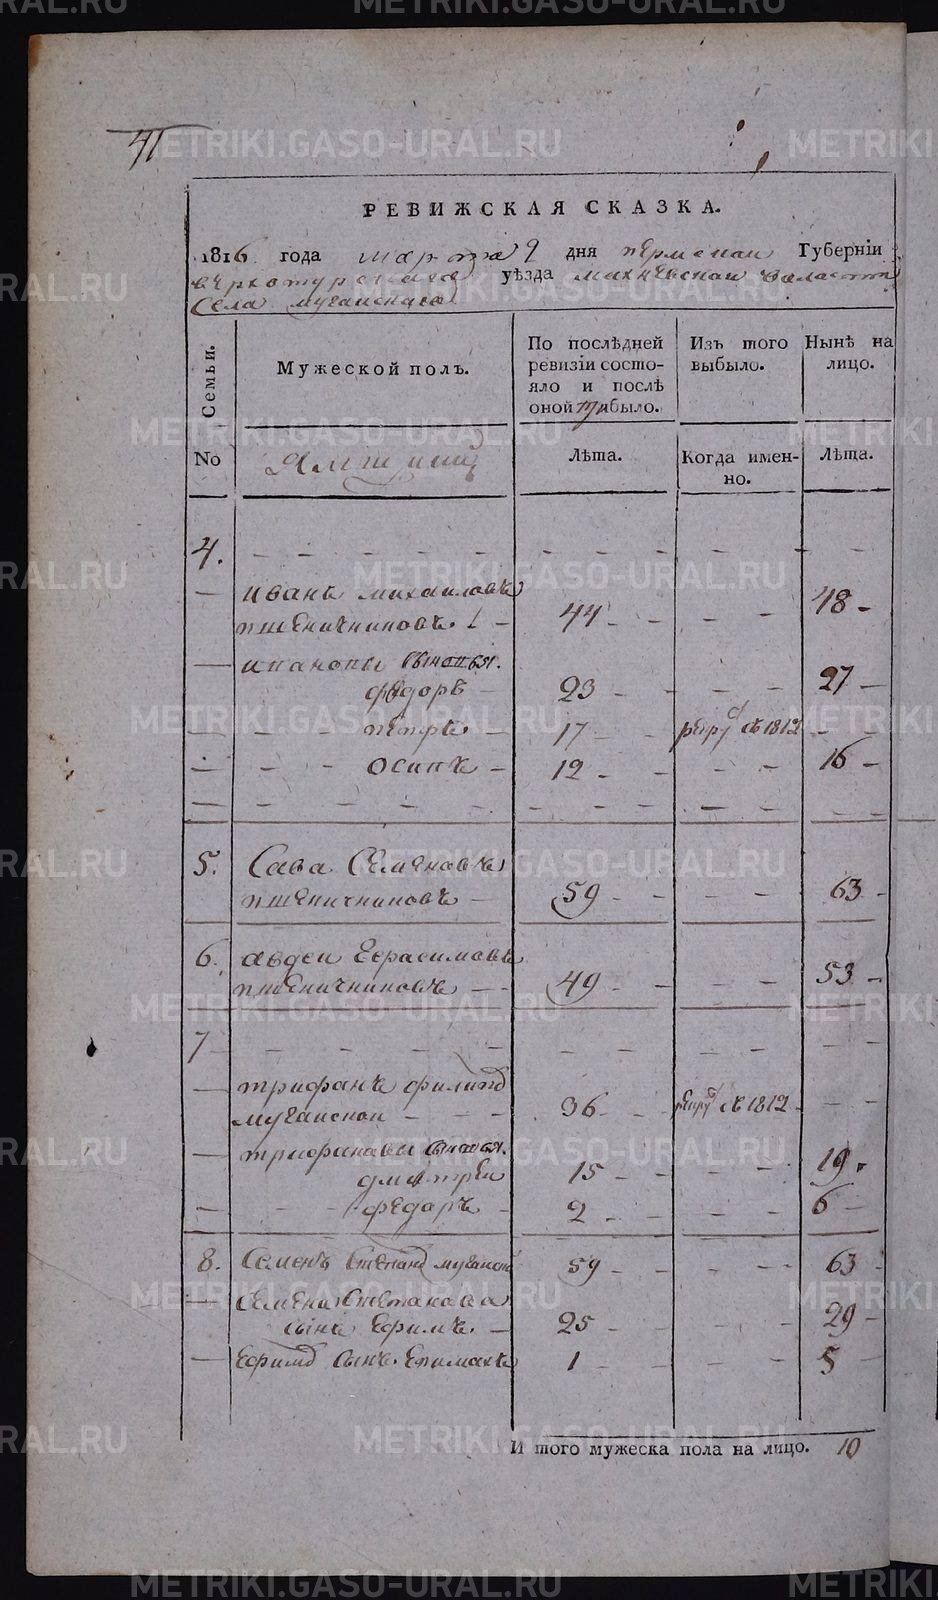 41
РЕВИЖСКАЯ СКАЗКА.
1816 года марта 9 дня пермской Губерніи
верхотурскаго уѣзда махневской воласти
села мугайскаго
Семьи.
Мужеской полъ.
По послѣдней ревизіи состояло и послѣ оной прибыло.
Изъ того выбыло.
Нынѣ на лицо.
No
Ямщики
Лѣта.
Когда именно.
Лѣта.
4.
иванъ михаиловъ
пшеничниковъ. 44 48
ивановы сыновья.
федоръ 23 27
петръ. 17 рекру въ 1812
осипъ 12 16
5. Сава Семеновъ
пшеничниковъ 59 63
6. авдеи Герасимовъ
пшеничниковъ 49 53
7
трифанъ филипо
мугаискои 36 рекру въ 1812
трифановы сыновья.
дмитреи 15 19
федоръ 2 6
8. Семенъ Степано мугаиско 59 63
Семена Степанова
сынъ Ефимъ. 25 29
Ефимо сынъ. Епимахъ 1 5
И того мужеска пола на лицо. 10
METRIKI.GASO-URAL.RU